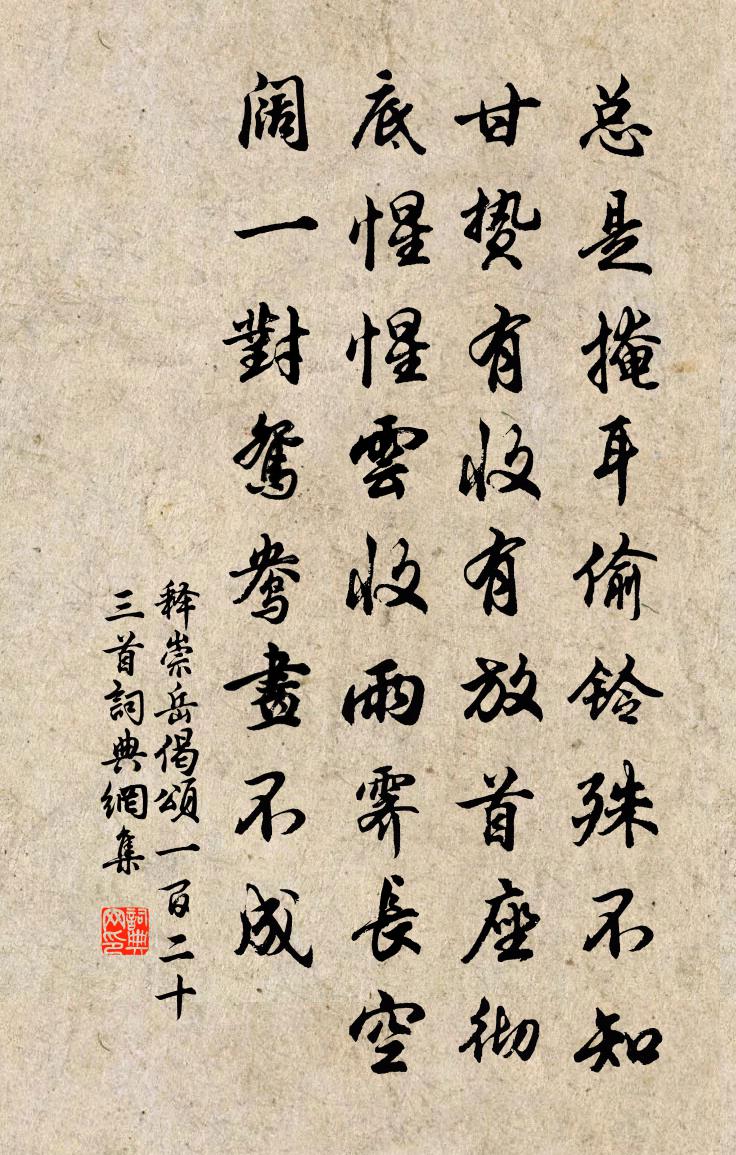 总是掩耳偷铃殊不知
甘贽有收有放首座彻
底惺惺雲收雨霁長空
阔一對鸳鸯畫不成
释崇岳偈頌一百二十
三首詞典網集
詞典网印